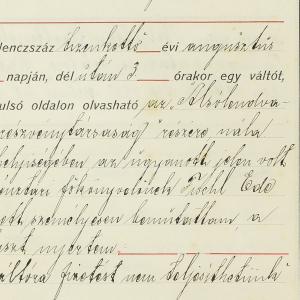 lenczszáz tizenkettő évi augusztus
napján, dél után 3 órakor egy váltót,
ulsó oldalon olvasható az "Alsólendva-
részvénytársaság" részére nála
helyiségében az ugyanott jelen volt
főkönyvelőnek Fischl Ede
ett személyesen bemutattam, a
szt nyertem.
váltóra fizetést nem teljesíthetünk